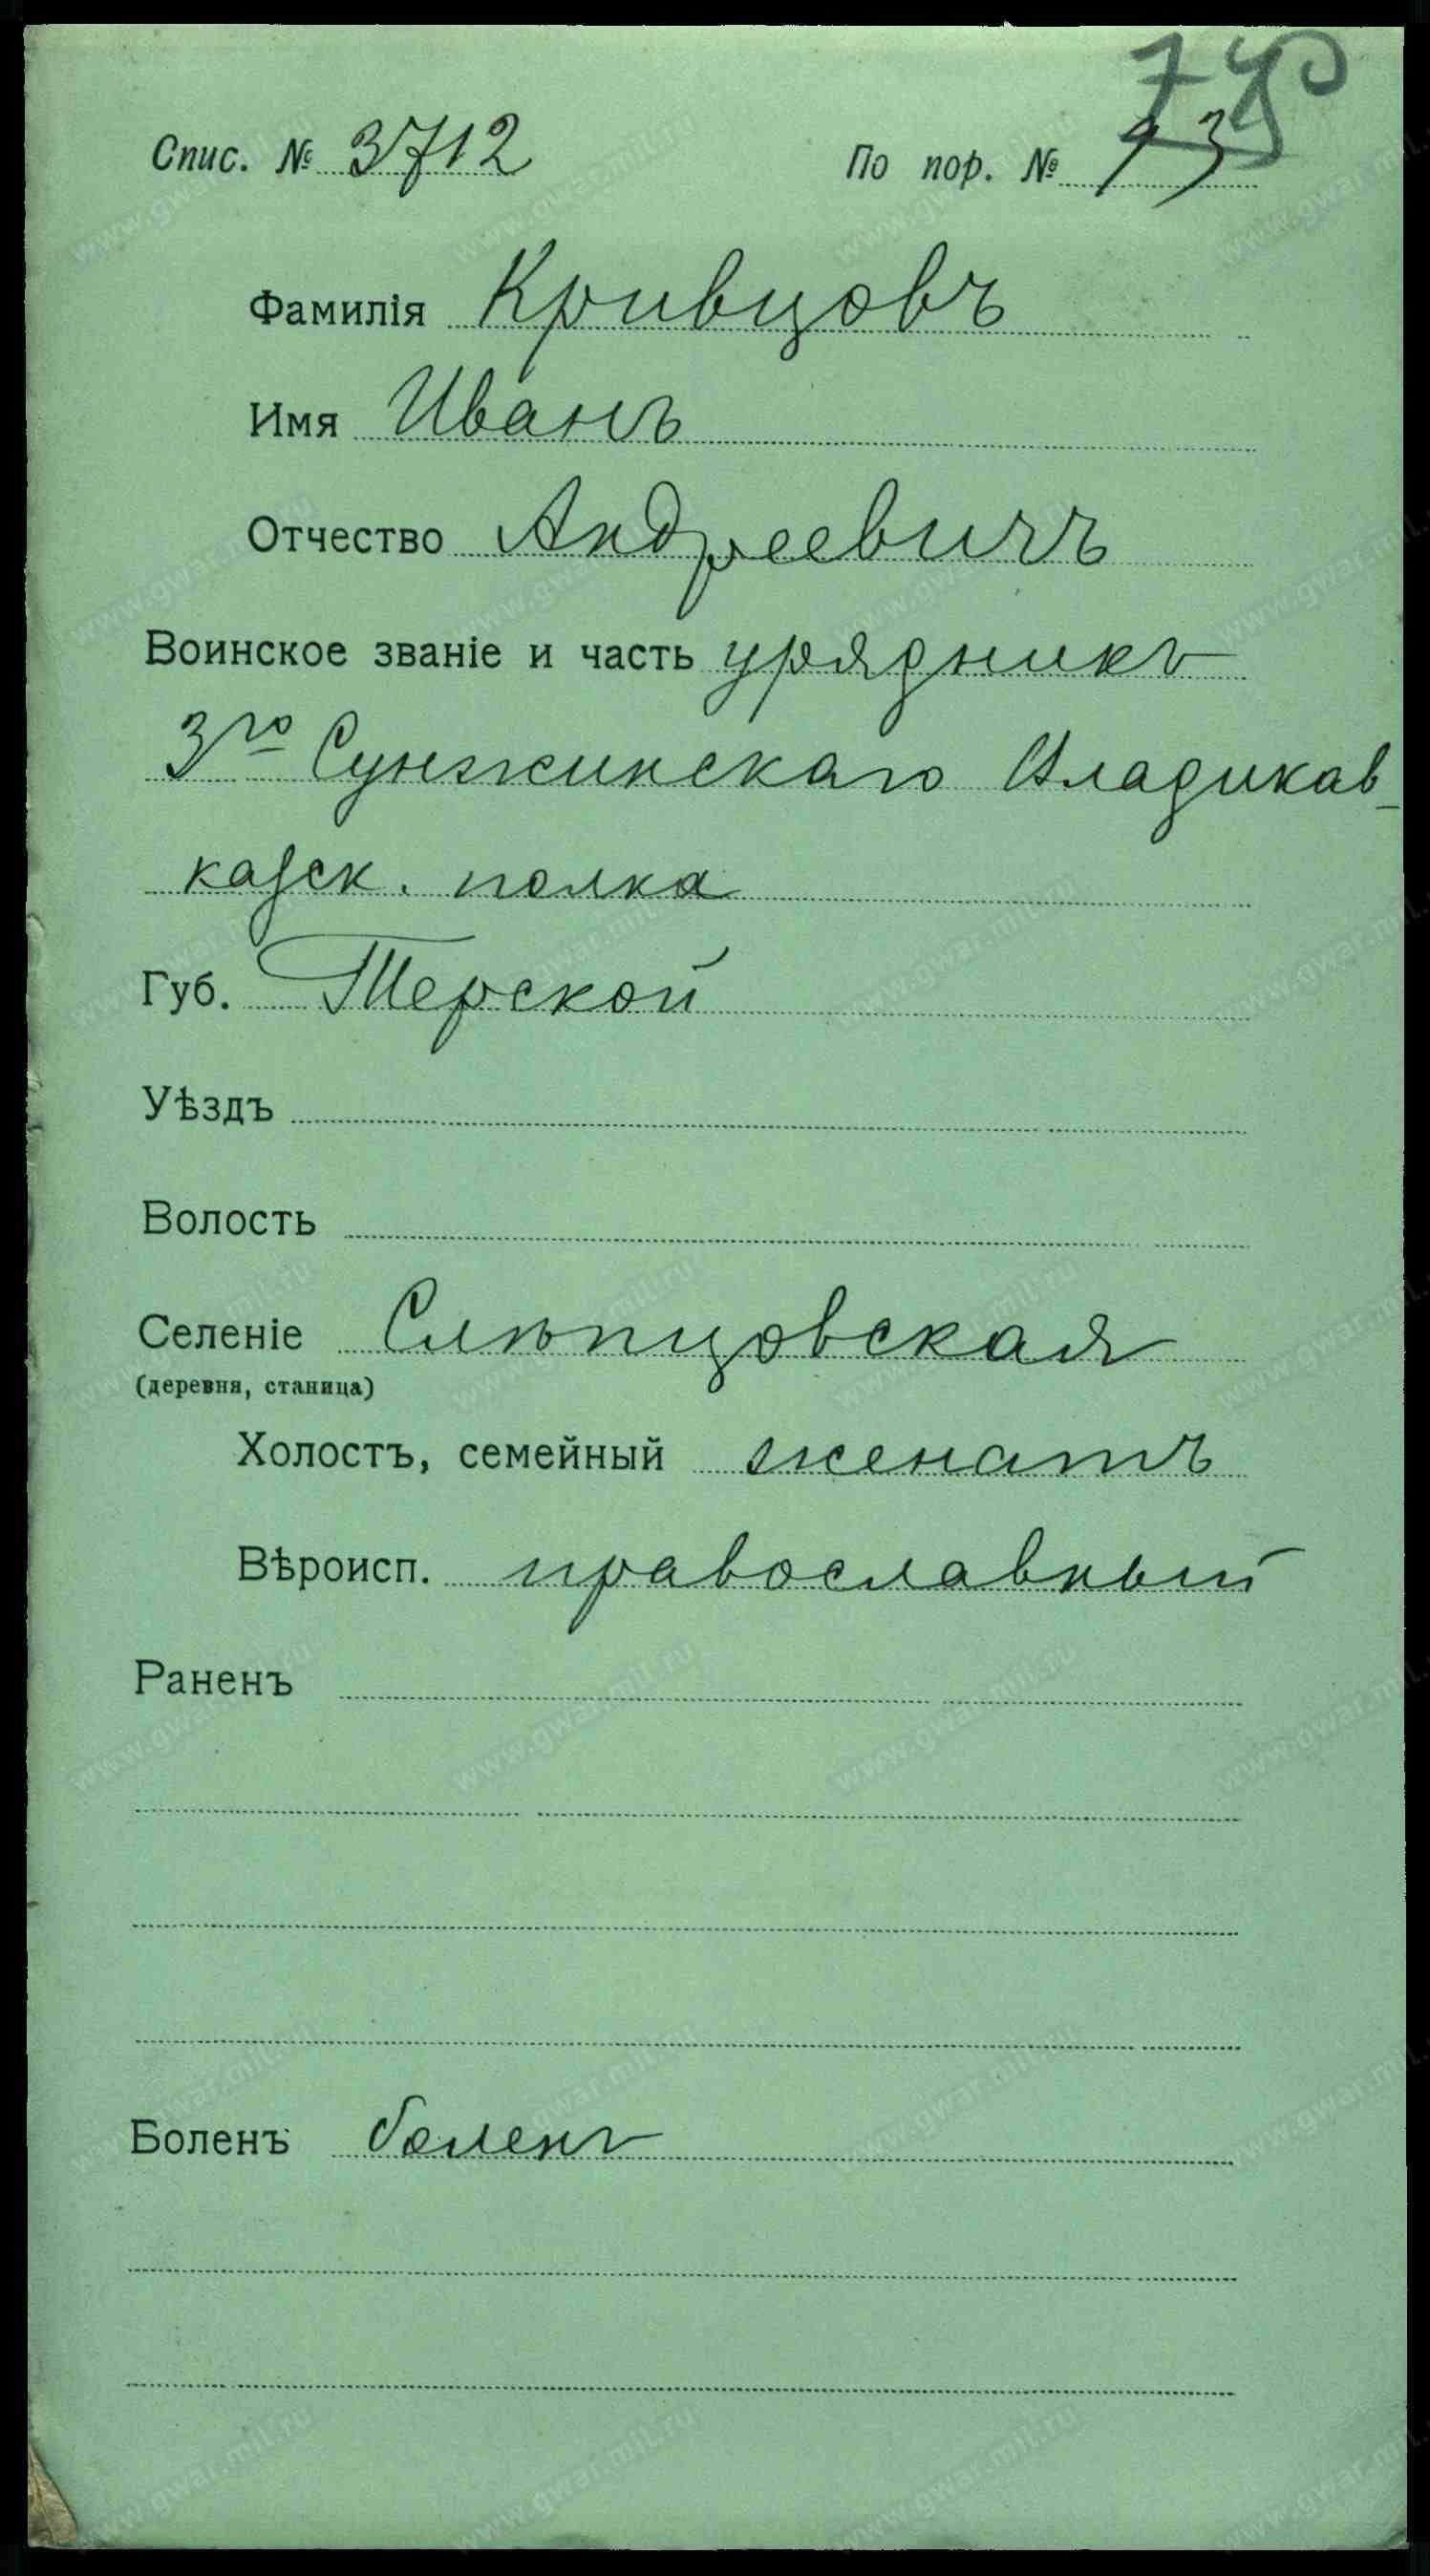 Спис. № 3712 По пор. № 13
Фамилія Кривцовъ
Имя Иванъ
Отчество Андреевичъ
Воинское званіе и часть урядникъ
3го Сунжинскаго Владикав-
казск. полка
Губ. Терской
Уѣздъ
Волость
Селеніе Слѣпцовская
(деревня, станица)
Холостъ, семейный женатъ
Вѣроисп. православный
Раненъ
Боленъ боленъ